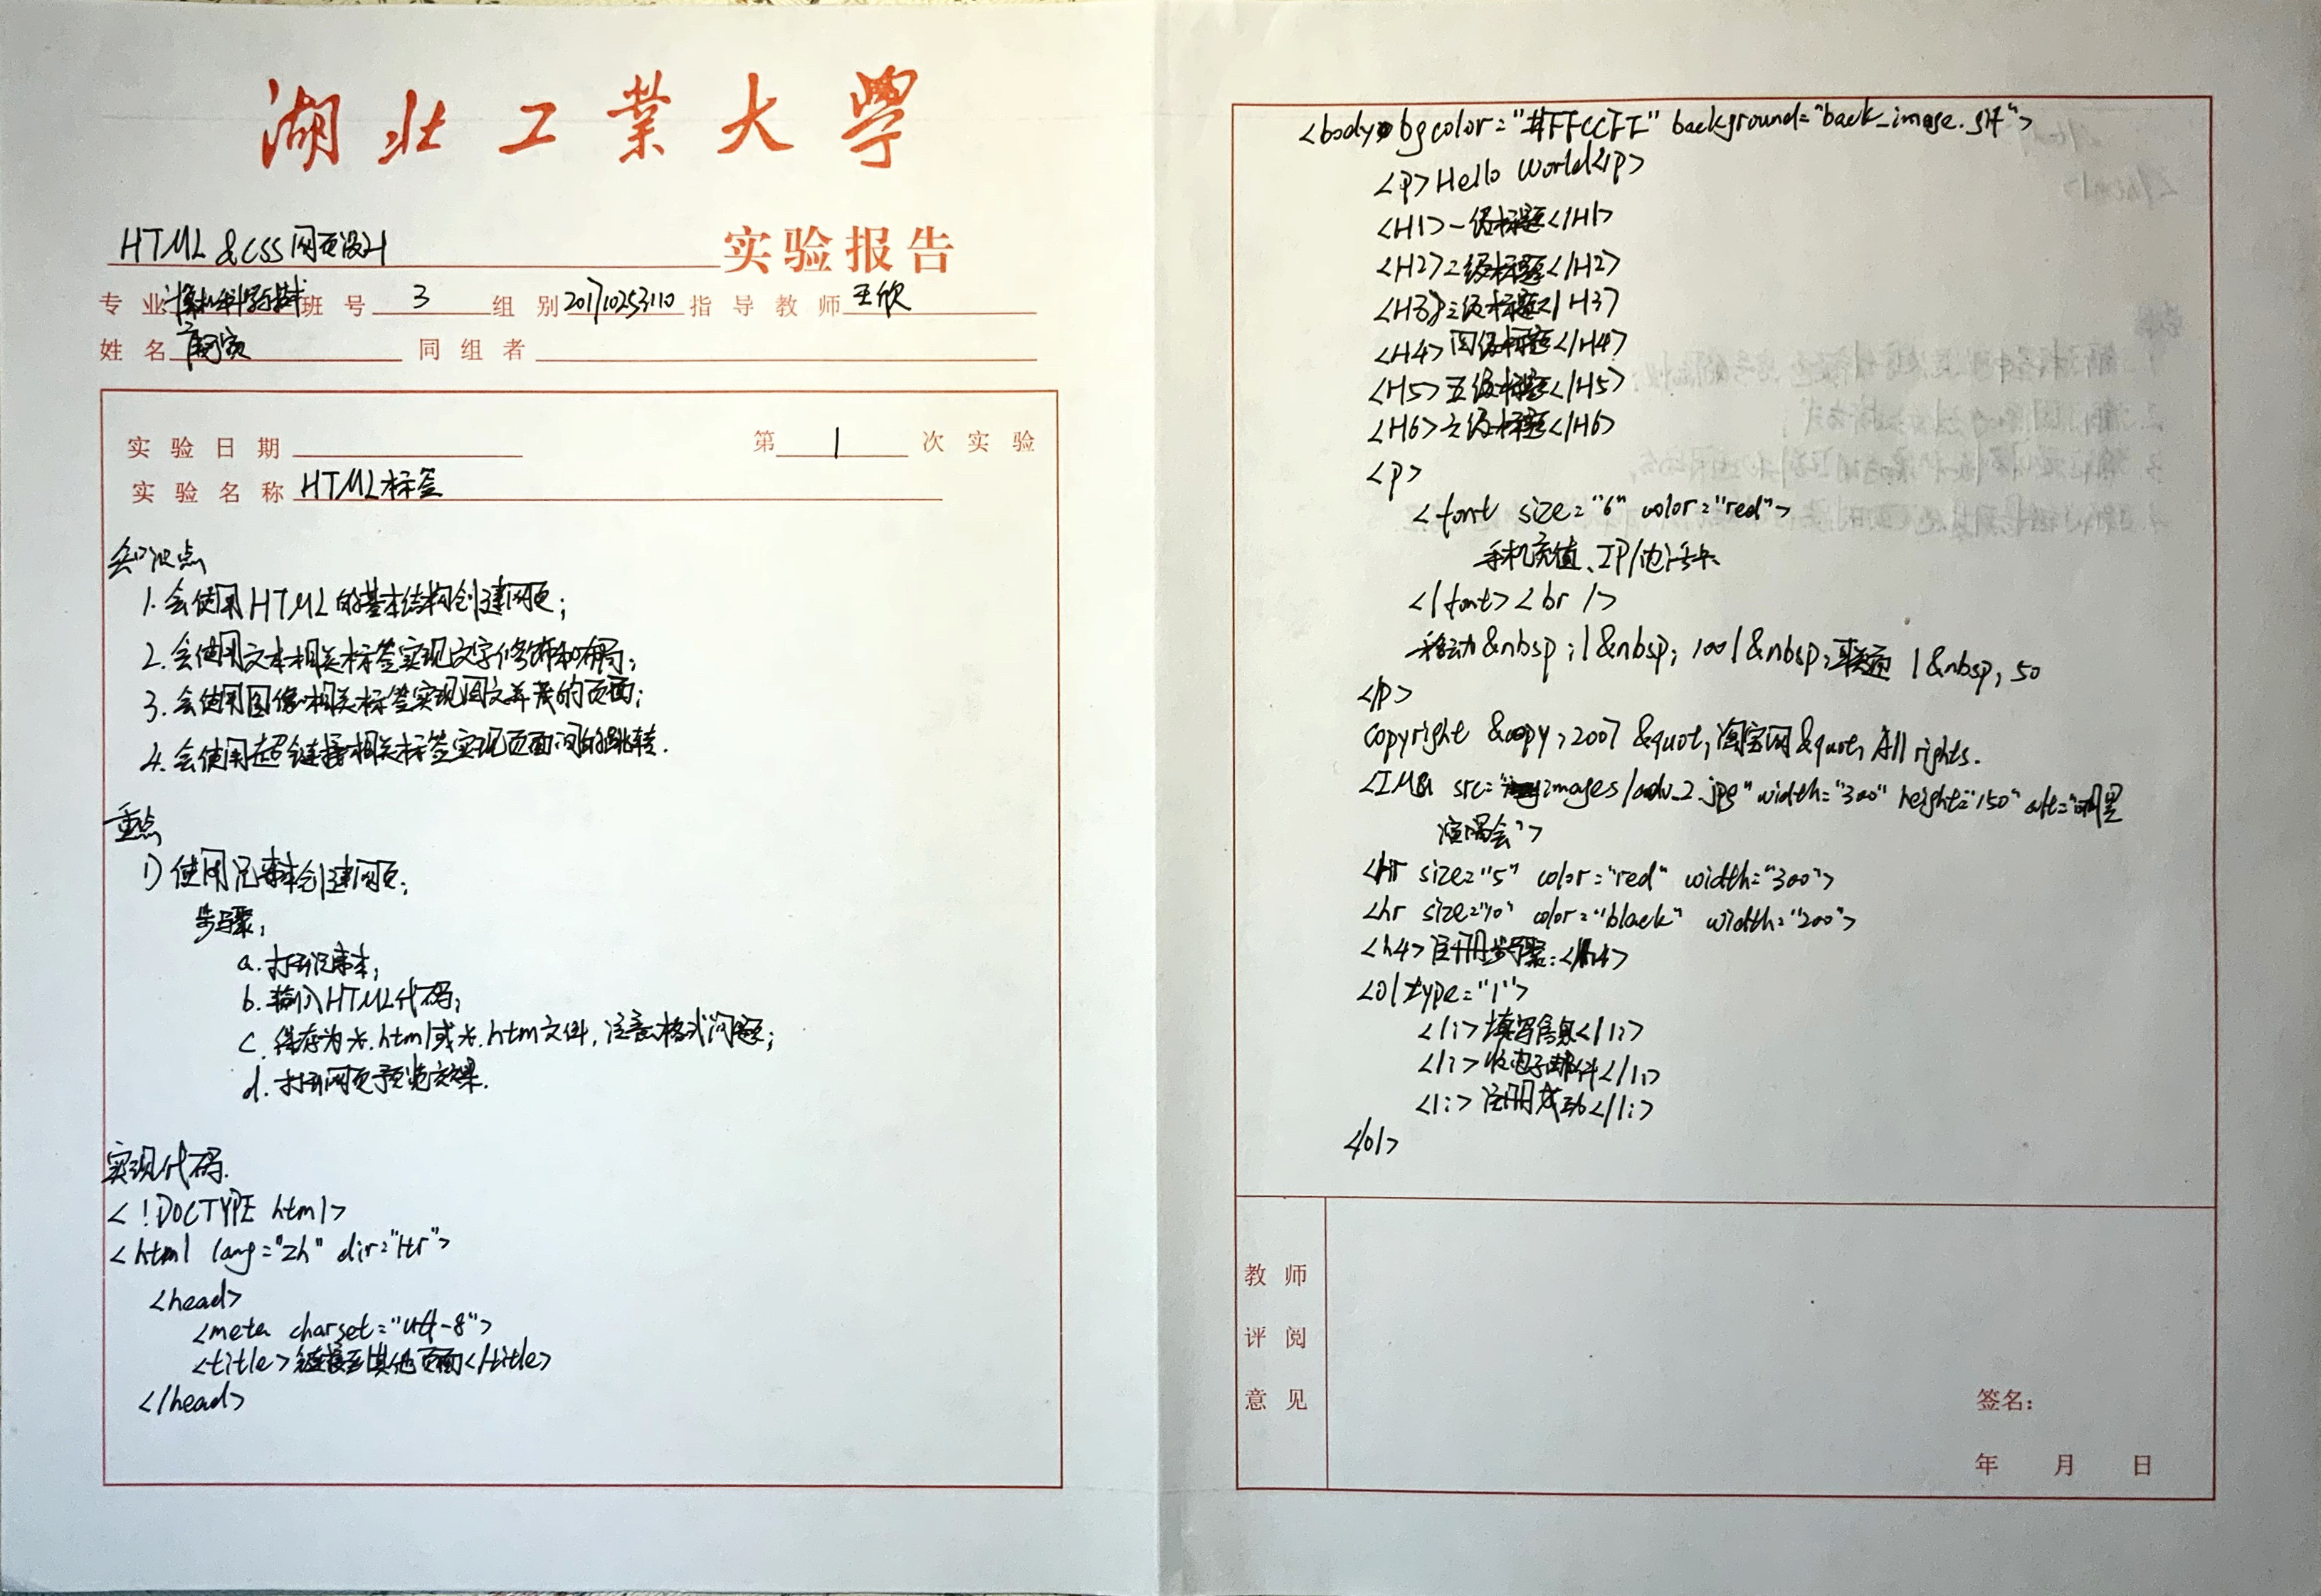 湖北工業大學
HTML & CSS网页设计 实验报告
专业 计算机科学与技术 班号 3 组别 201710253110 指导教师 王欣
姓名 同组者
实验日期 第 1 次实验
实验名称 HTML标签
知识点
1. 会使用HTML的基本结构创建网页;
2. 会使用文本相关标签实现文字修饰和布局;
3. 会使用图像相关标签实现图文并茂的页面;
4. 会使用超链接相关标签实现页面间的跳转.
重点
1) 使用记事本创建网页;
步骤:
a. 打开记事本;
b. 输入HTML代码;
c. 保存为*.html或*.htm文件, 注意格式问题;
d. 打开网页预览效果.
实现代码.
<!DOCTYPE html>
<html lang="zh" dir="ltr">
<head>
<meta charset="utf-8">
<title>链接到其他页面</title>
</head>
<body bgcolor="#FFCCFF" background="back_image.gif">
<p>Hello World</p>
<H1>一级标题</H1>
<H2>二级标题</H2>
<H3>三级标题</H3>
<H4>四级标题</H4>
<H5>五级标题</H5>
<H6>六级标题</H6>
<p>
<font size="6" color="red">
手机充值、IP/电话卡
</font><br />
移动&nbsp;|&nbsp;100|&nbsp;联通|&nbsp;50
</p>
copyright &copy;2007 &quot;淘宝网&quot; All rights.
<IMG src="images/adv_2.jpg" width="300" height="150" alt="明星
演唱会">
<hr size="5" color="red" width="300">
<hr size="10" color="black" width="200">
<h4>注册步骤:</h4>
<ol type="1">
<li>填写信息</li>
<li>收电子邮件</li>
<li>注册成功</li>
</ol>
教师
评阅
意见
签名:
年 月 日